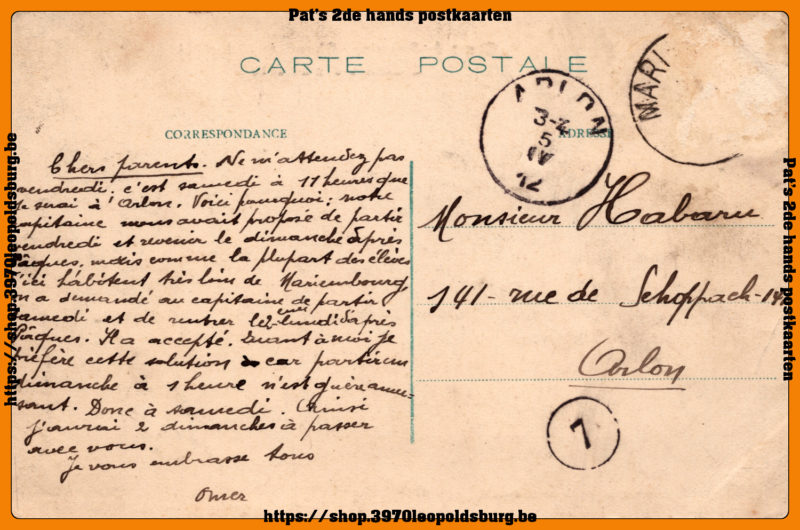 Pat's 2de hands postkaarten
CARTE POSTALE
CORRESPONDANCE
ADRESSE
ARLON
3-4
5
IV
12
MARI
Chers parents. Ne m'attendez pas
vendredi, c'est samedi à 11 heures que
je serai à Arlon. Voici pourquoi : notre
capitaine nous avait proposé de partir
vendredi et revenir le dimanche après
Pâques, mais comme la plupart des élèves
d'ici habitent très loin de Mariembourg
on a demandé au capitaine de partir
samedi et de rentrer le 2 lundi après
Pâques. Il a accepté. Quant à moi je
préfère cette solution car partir un
dimanche à 1 heure n'est guère amu-
sant. Donc à samedi. Ainsi
j'aurai 2 dimanches à passer
avec vous.
Je vous embrasse tous
Omer
Monsieur Habaru
141 - rue de Schoppach - 141
Arlon
7
https://shop.3970leopoldsburg.be
https://shop.3970leopoldsburg.be
Pat's 2de hands postkaarten